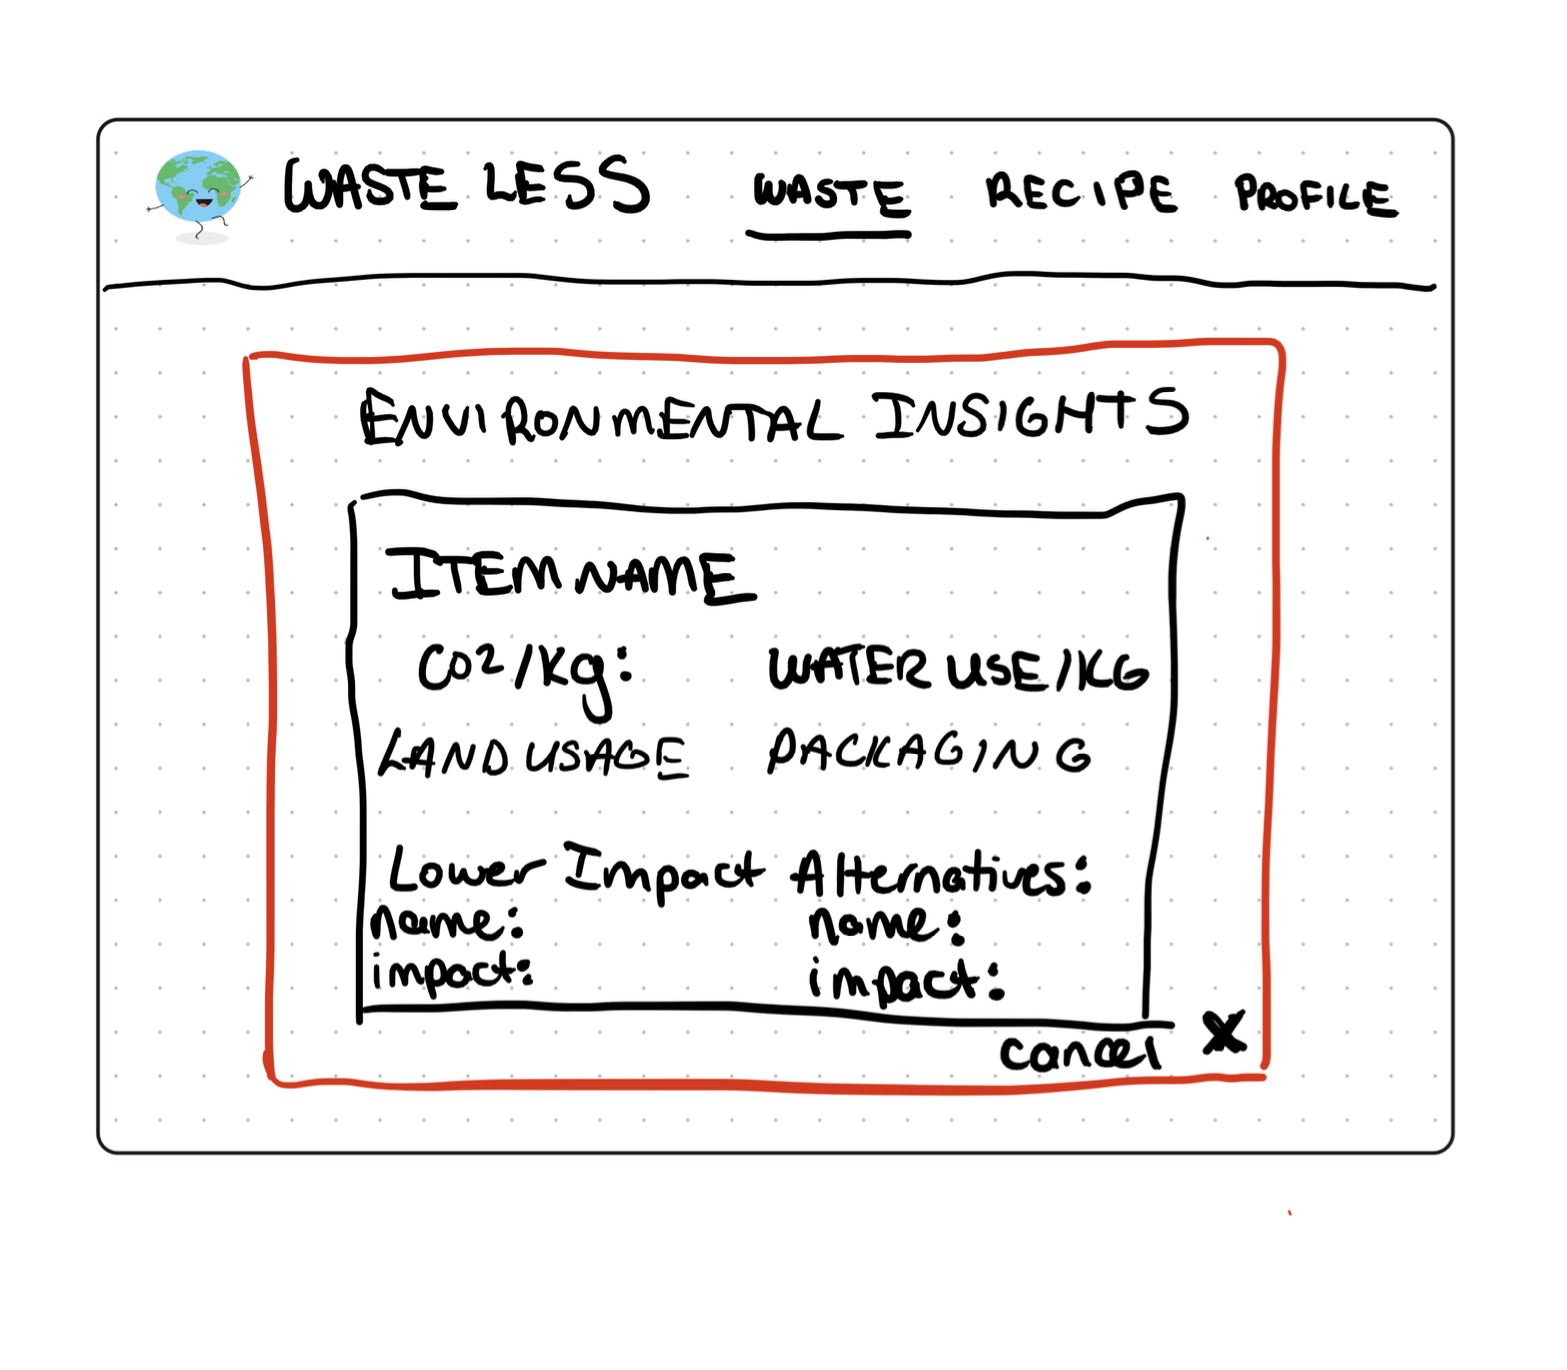 WASTE LESS WASTE RECIPE PROFILE
ENVIRONMENTAL INSIGHTS
ITEM NAME
CO2/kg: WATER USE/KG
LAND USAGE PACKAGING
Lower Impact Alternatives:
name: name:
impact: impact:
cancel X